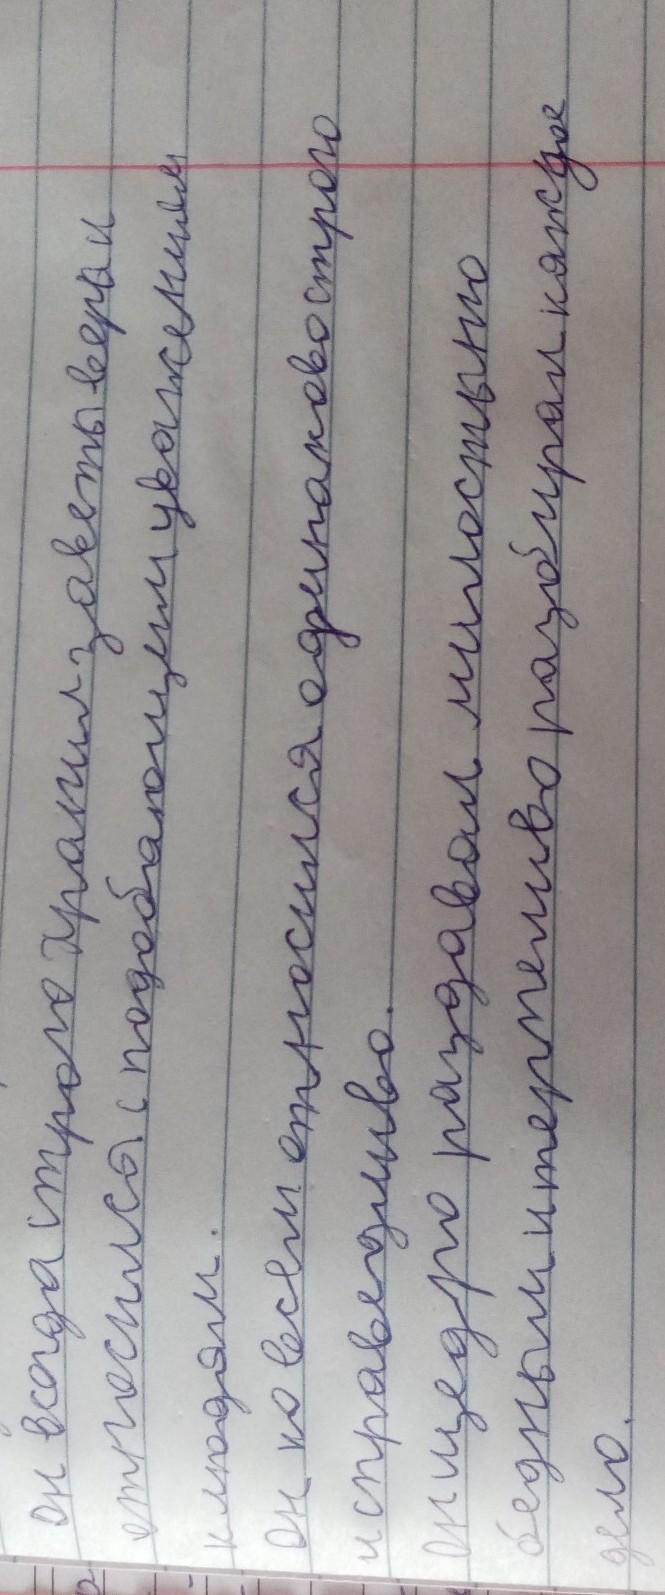 он всегда строго хранил заветы веры и
относился с подобающим уважением
к людям.
Он ко всем относился одинаково строго
и справедливо.
Он щедро раздавал милостыню
бедным и терпеливо разбирал кажд
дело.